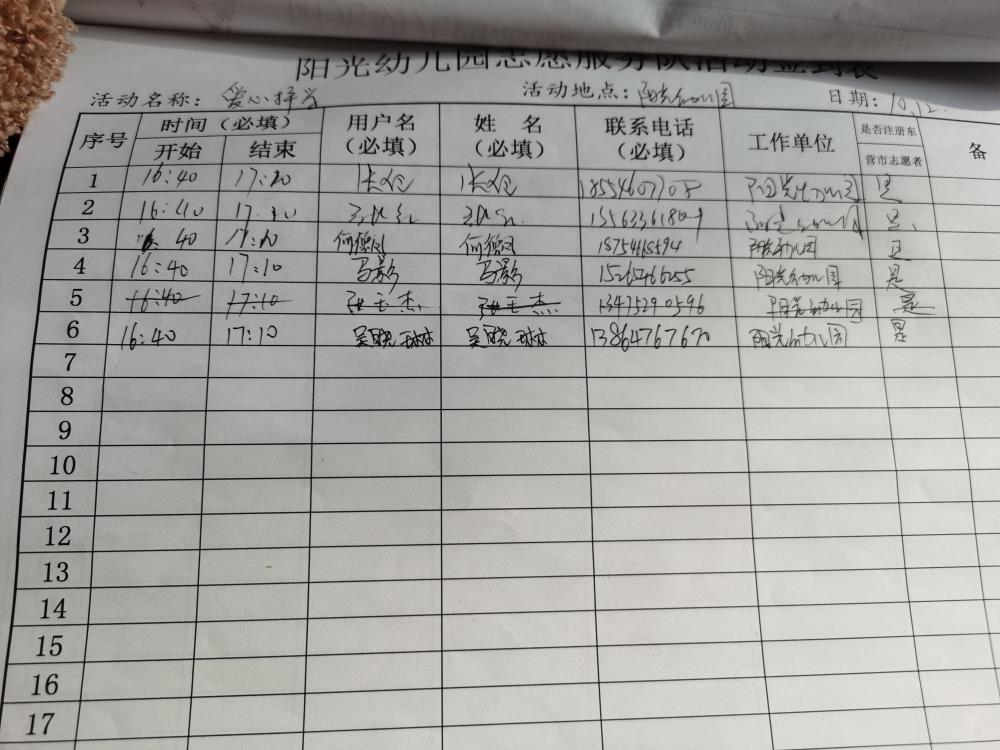 阳光幼儿园志愿服务队活动签到表
活动名称： 爱心择菜 活动地点：阳光幼儿园 日期：10.12.
序号 时间（必填） 用户名（必填） 姓 名（必填） 联系电话（必填） 工作单位 是否注册东营市志愿者 备
开始 结束
1 16:40 17:10 是
2 16:40 17:10 是
3 16:40 17:10 何德凤 何德凤 阳光幼儿园 是
4 16:40 17:10 马影 马影 阳光幼儿园 是
5 16:40 17:10 张玉杰 张玉杰 13475290596 阳光幼儿园 是
6 16:40 17:10 吴晓琳 吴晓琳 13864767670 阳光幼儿园 是
7
8
9
10
11
12
13
14
15
16
17